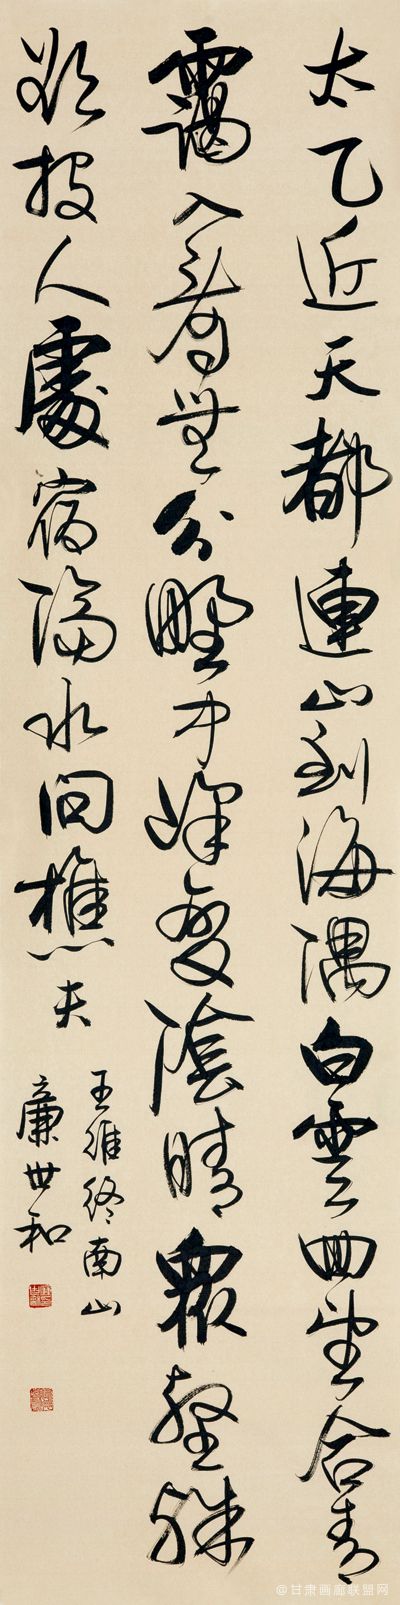 太乙近天都連山到海隅白雲回望合青
靄入看無分野中峰變陰晴眾壑殊
欲投人處宿隔水問樵夫
王維終南山
廉世和
@甘肃画廊联盟网